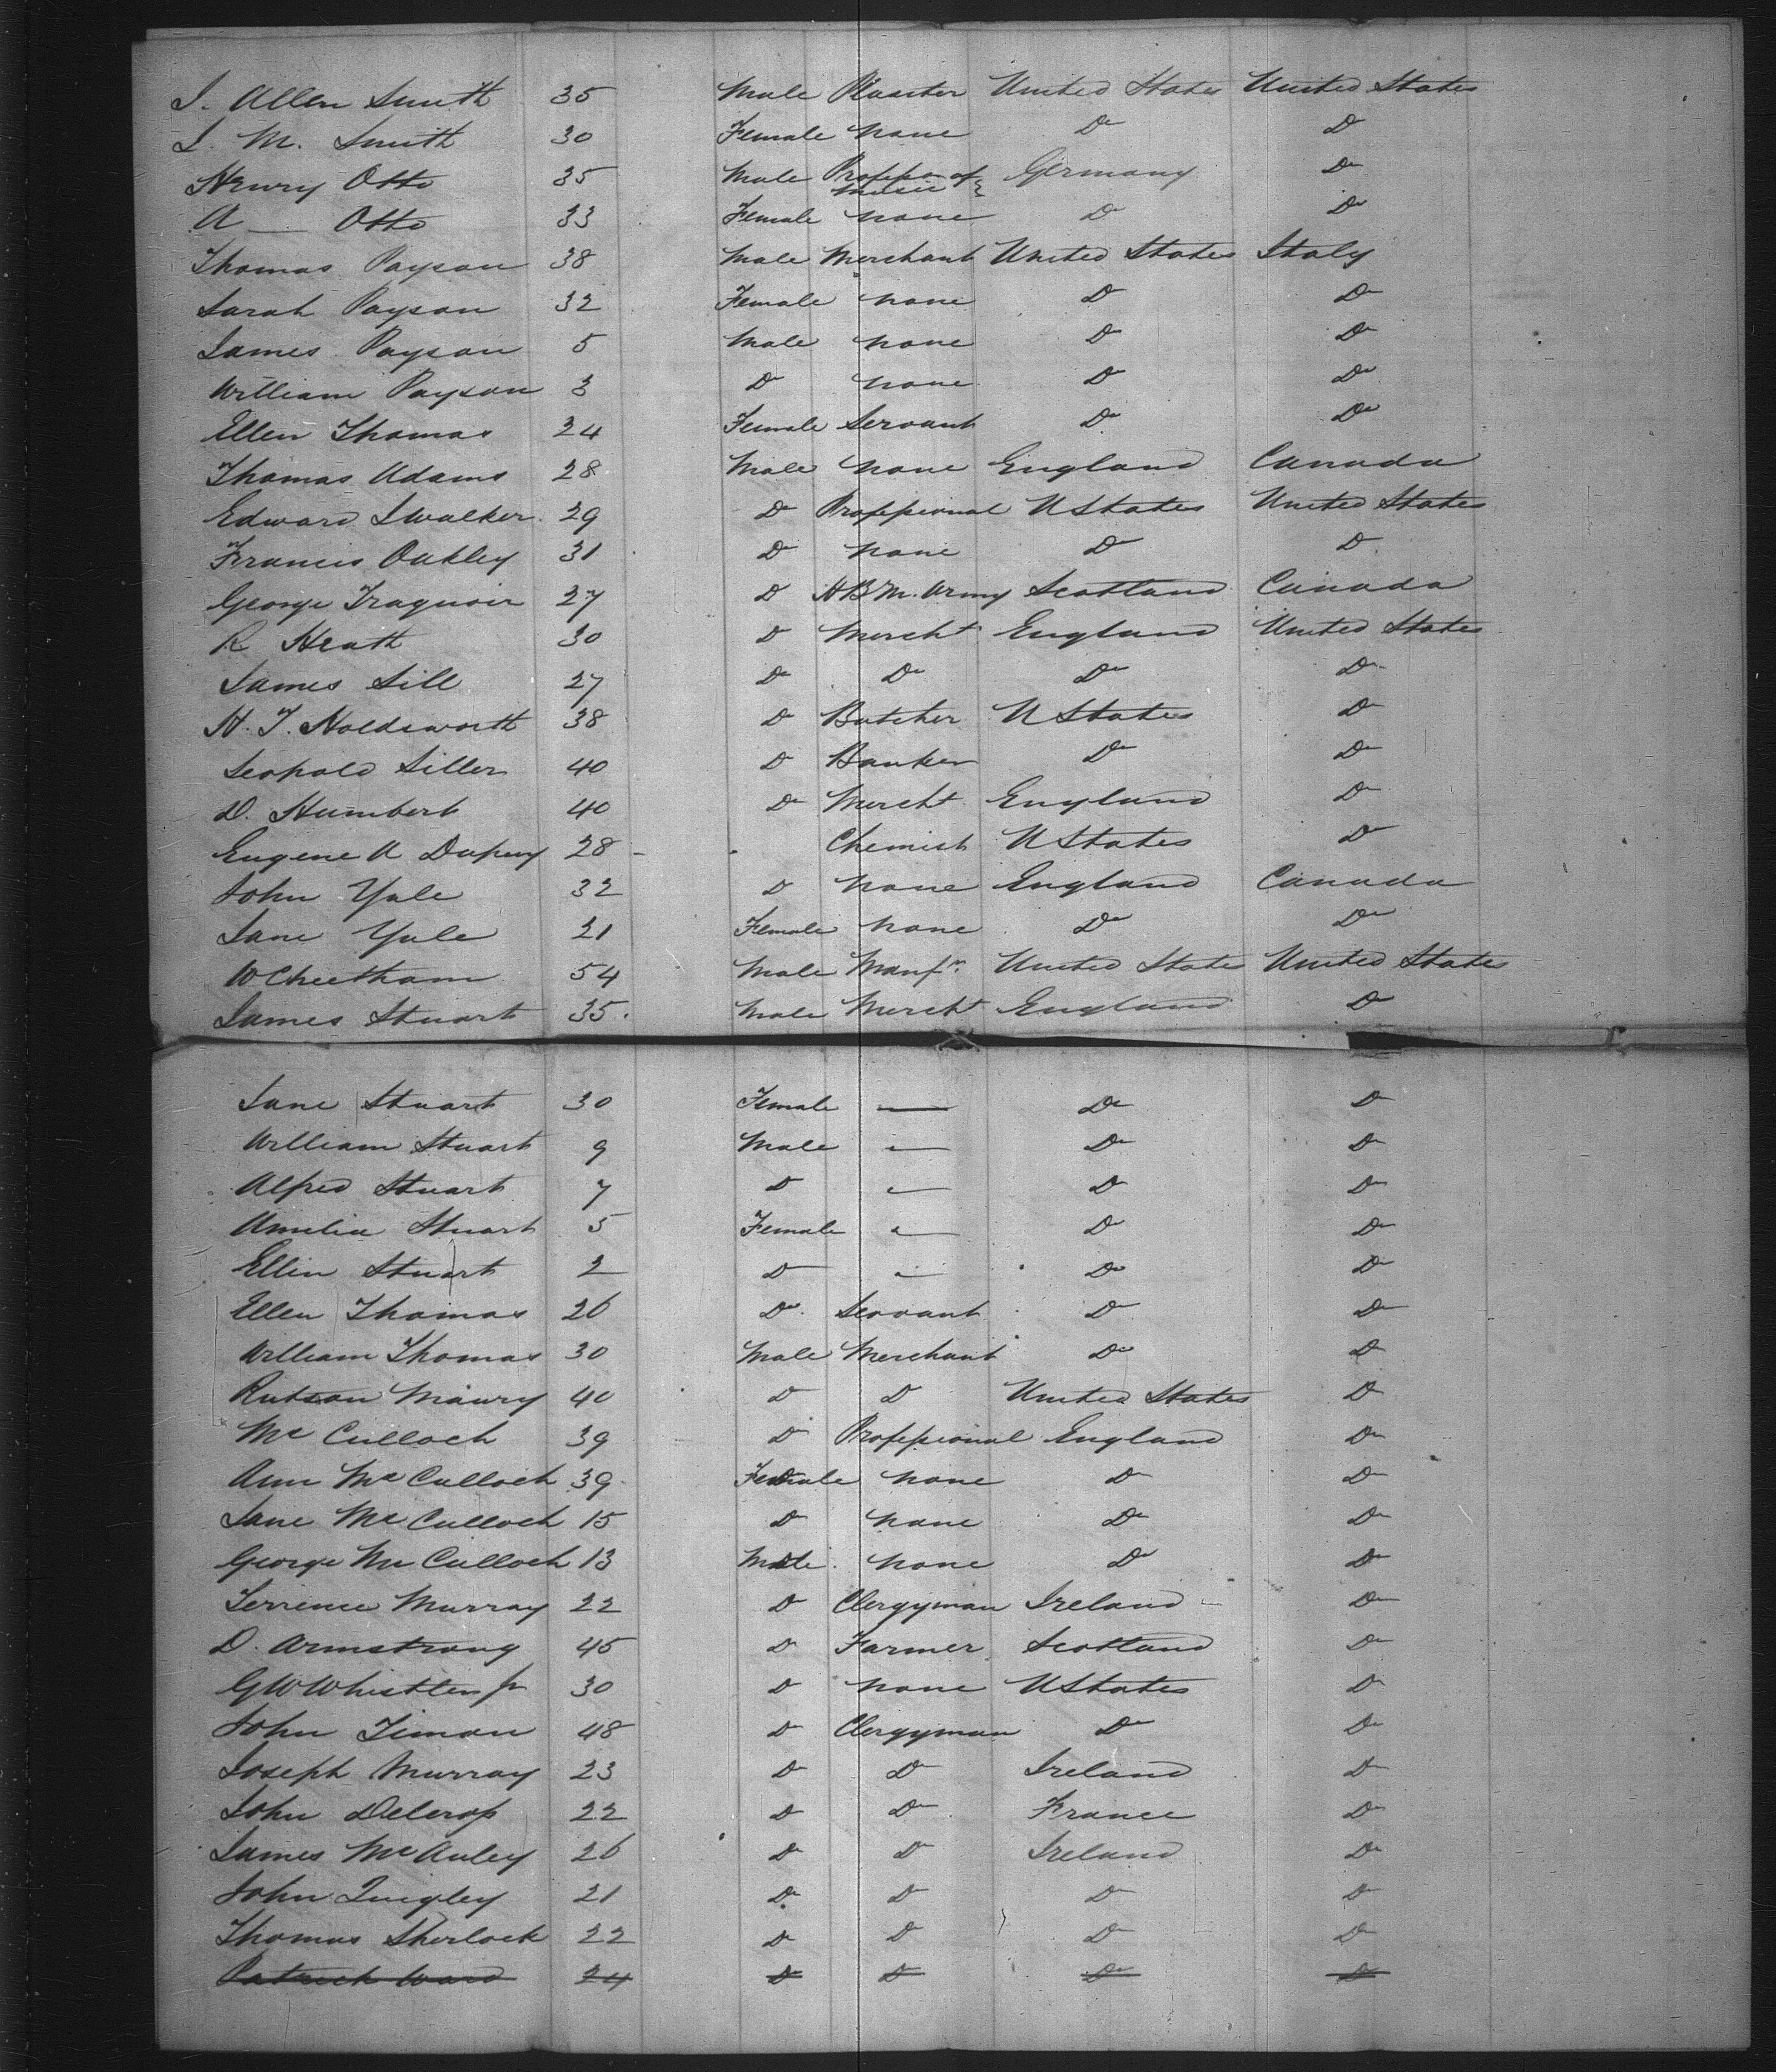 J. Allen Smith 35 Male Planter United States United States
J. M. Smith 30 Female none Do Do
Henry Otto 35 Male Professor of music Germany Do
A — Otto 33 Female none Do Do
Thomas Payson 38 Male Merchant United States Italy
Sarah Payson 32 Female none Do Do
James Payson 5 Male none Do Do
William Payson 3 Do none Do Do
Ellen Thomas 24 Female Servant Do Do
Thomas Adams 28 Male none England Canada
Edward S Walker 29 Do Professional U States United States
Francis Oakley 31 Do none Do Do
George Traquoir 27 Do H B M. Army Scotland Canada
R Heath 30 Do Mercht England United States
James Sill 27 Do Do Do Do
H. T. Holdsworth 38 Do Butcher U States Do
Leopold Siller 40 Do Banker Do Do
D. Humbert 40 Do Mercht England Do
Eugene A Dupuy 28 - Chemist U States Do
John Yule 32 Do none England Canada
Jane Yule 21 Female none Do Do
W Cheetham 54 Male Manfr. United States United States
James Stuart 35. Male Mercht England Do
Jane Stuart 30 Female — Do Do
William Stuart 9 Male — Do Do
Alfred Stuart 7 Do — Do Do
Amelia Stuart 5 Female — Do Do
Ellin Stuart 2 Do — Do Do
Ellen Thomas 26 Do Servant Do Do
William Thomas 30 Male Merchant Do Do
Rutson Maury 40 Do Do United States Do
Mc Culloch 39 Do Professional England Do
Ann Mc Culloch 39 Female none Do Do
Jane Mc Culloch 15 Do none Do Do
George Mc Culloch 13 Male none Do Do
Terrence Murray 22 Do Clergyman Ireland Do
D. Armstrong 45 Do Farmer Scotland Do
G W Whistler jr 30 Do none U States Do
John Timon 48 Do Clergyman Do Do
Joseph Murray 23 Do Do Ireland Do
John 22 Do Do France Do
James McAuley 26 Do Do Ireland Do
John Quigley 21 Do Do Do Do
Thomas Sherlock 22 Do Do Do Do
Patrick Ward 24 Do Do Do Do